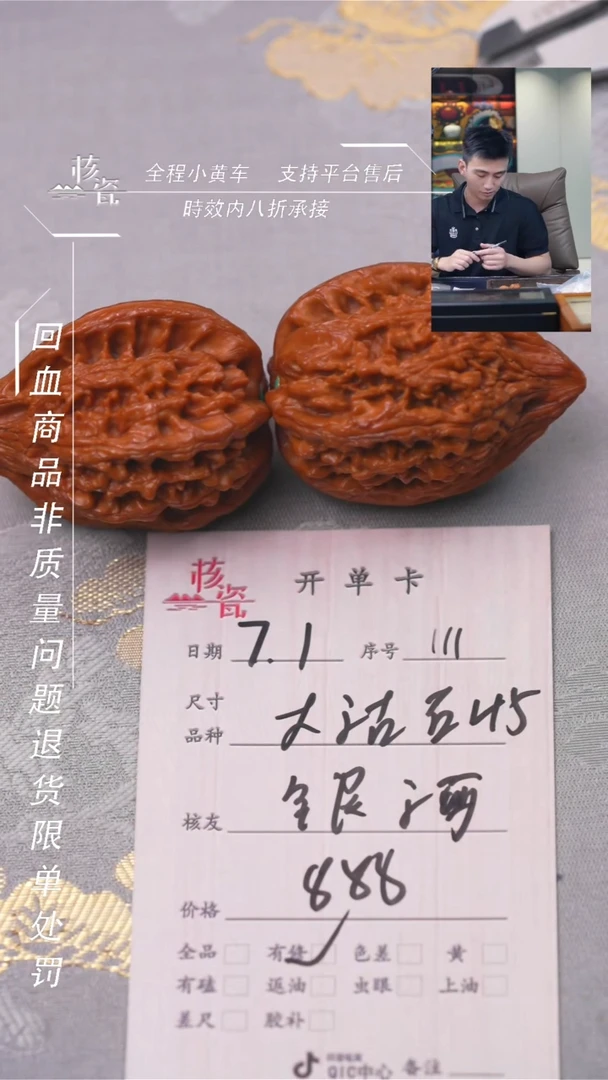 核瓷
全程小黄车 支持平台售后
時效内八折承接
回血商品非质量问题退货限单处罚
核瓷
开单卡
日期 7.1 序号 111
尺寸
品种 大沽石45
核友 银河
价格 888
全品 有缝 色差 黄
有磕 返油 虫眼 上油
差尺 胶补
抖音电商
QIC中心 备注